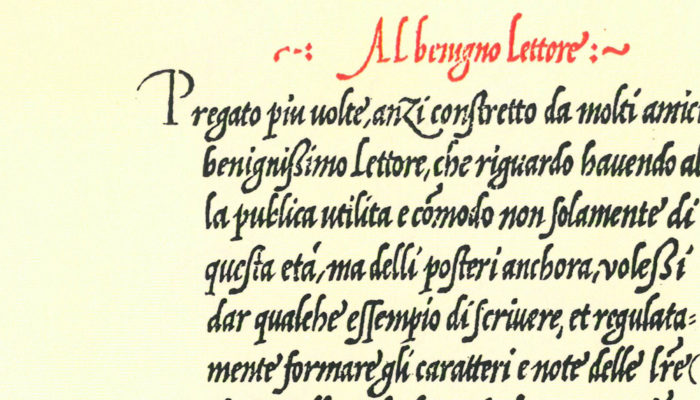 Al benigno lettore :~
Pregato piu uolte, anzi constretto da molti amici
benignißimo Lettore, che riguardo hauendo al
la publica utilita e cōmodo non solamente di
questa etá, ma delli posteri anchora, uoleßi
dar qualche essempio di scriuere, et regulata=
mente formare gli caratteri e note delle lr̄e (